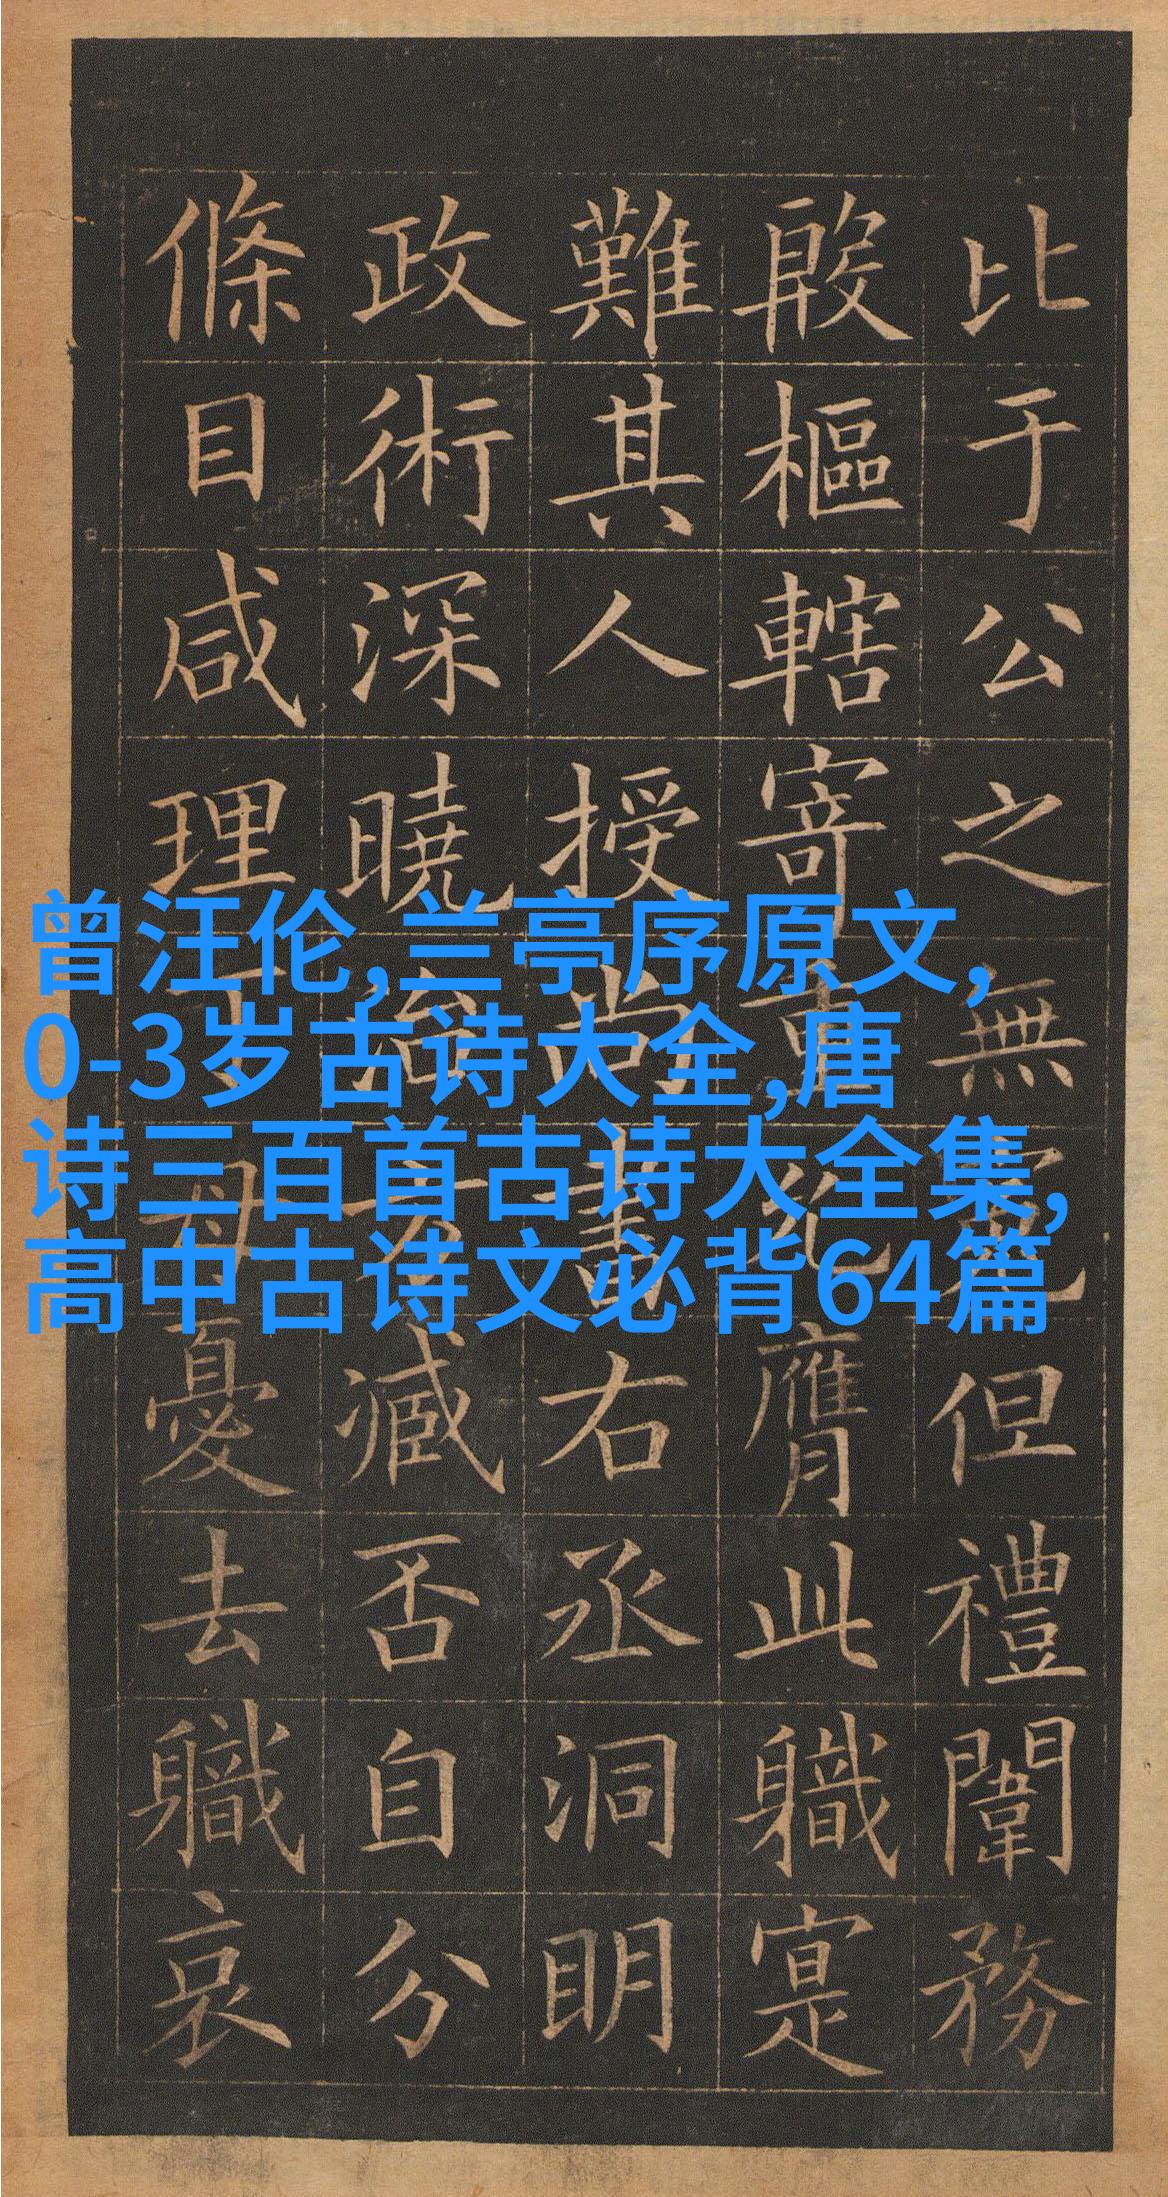 曾汪伦,兰亭序原文,
0-3岁古诗大全,唐
诗三百首古诗大全集,
高中古诗文必背64篇
比于公之無但禮闈務
殷樞轄寄重膺此職寔
難其人授尚書右丞洞明
政術深曉治方臧否自分
條目咸理丁母憂去職哀